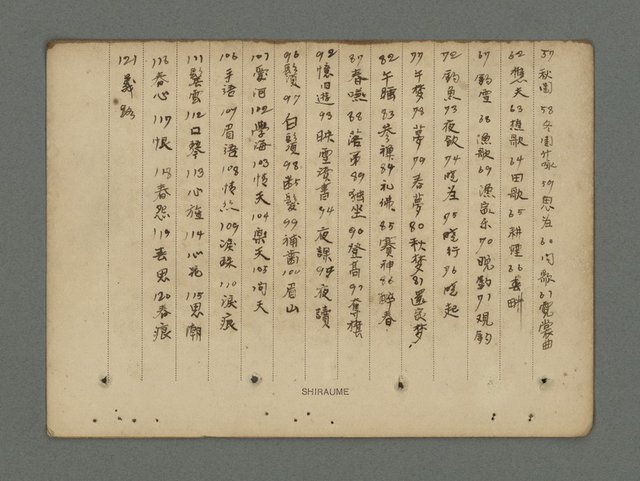 57 秋閨 58 冬閨詠 59 思君 60 問 61 霓裳曲
62 樵夫 63 樵歌 64 田歌 65 耕煙 66 畊
67 釣雪 68 漁歌 69 漁家樂 70 晚釣 71 观釣
72 釣魚 73 夜飲 74 晚 75 曉行 76 曉起
77 午梦 78 梦 79 春夢 80 秋梦 81 還家梦
82 午睡 83 参禅 84 礼佛 85 賽神 86 醉春
87 春 88 落第 89 独坐 90 登高 91 奪旗
92 懷旧遊 93 映雪讀書 94 夜課 95 夜讀
96 鬚 97 白鬚 98 齒髮 99 補齒 100 眉山
101 愛河 102 學海 103 情天 104 樂天 105 问天
106 手语 107 眉语 108 情絲 109 淚珠 110 淚痕
111 鬓雲 112 口琴 113 心旌 114 心花 115 思潮
116 春心 117 恨 118 春怨 119 春思 120 春痕
121 義路
SHIRAUME